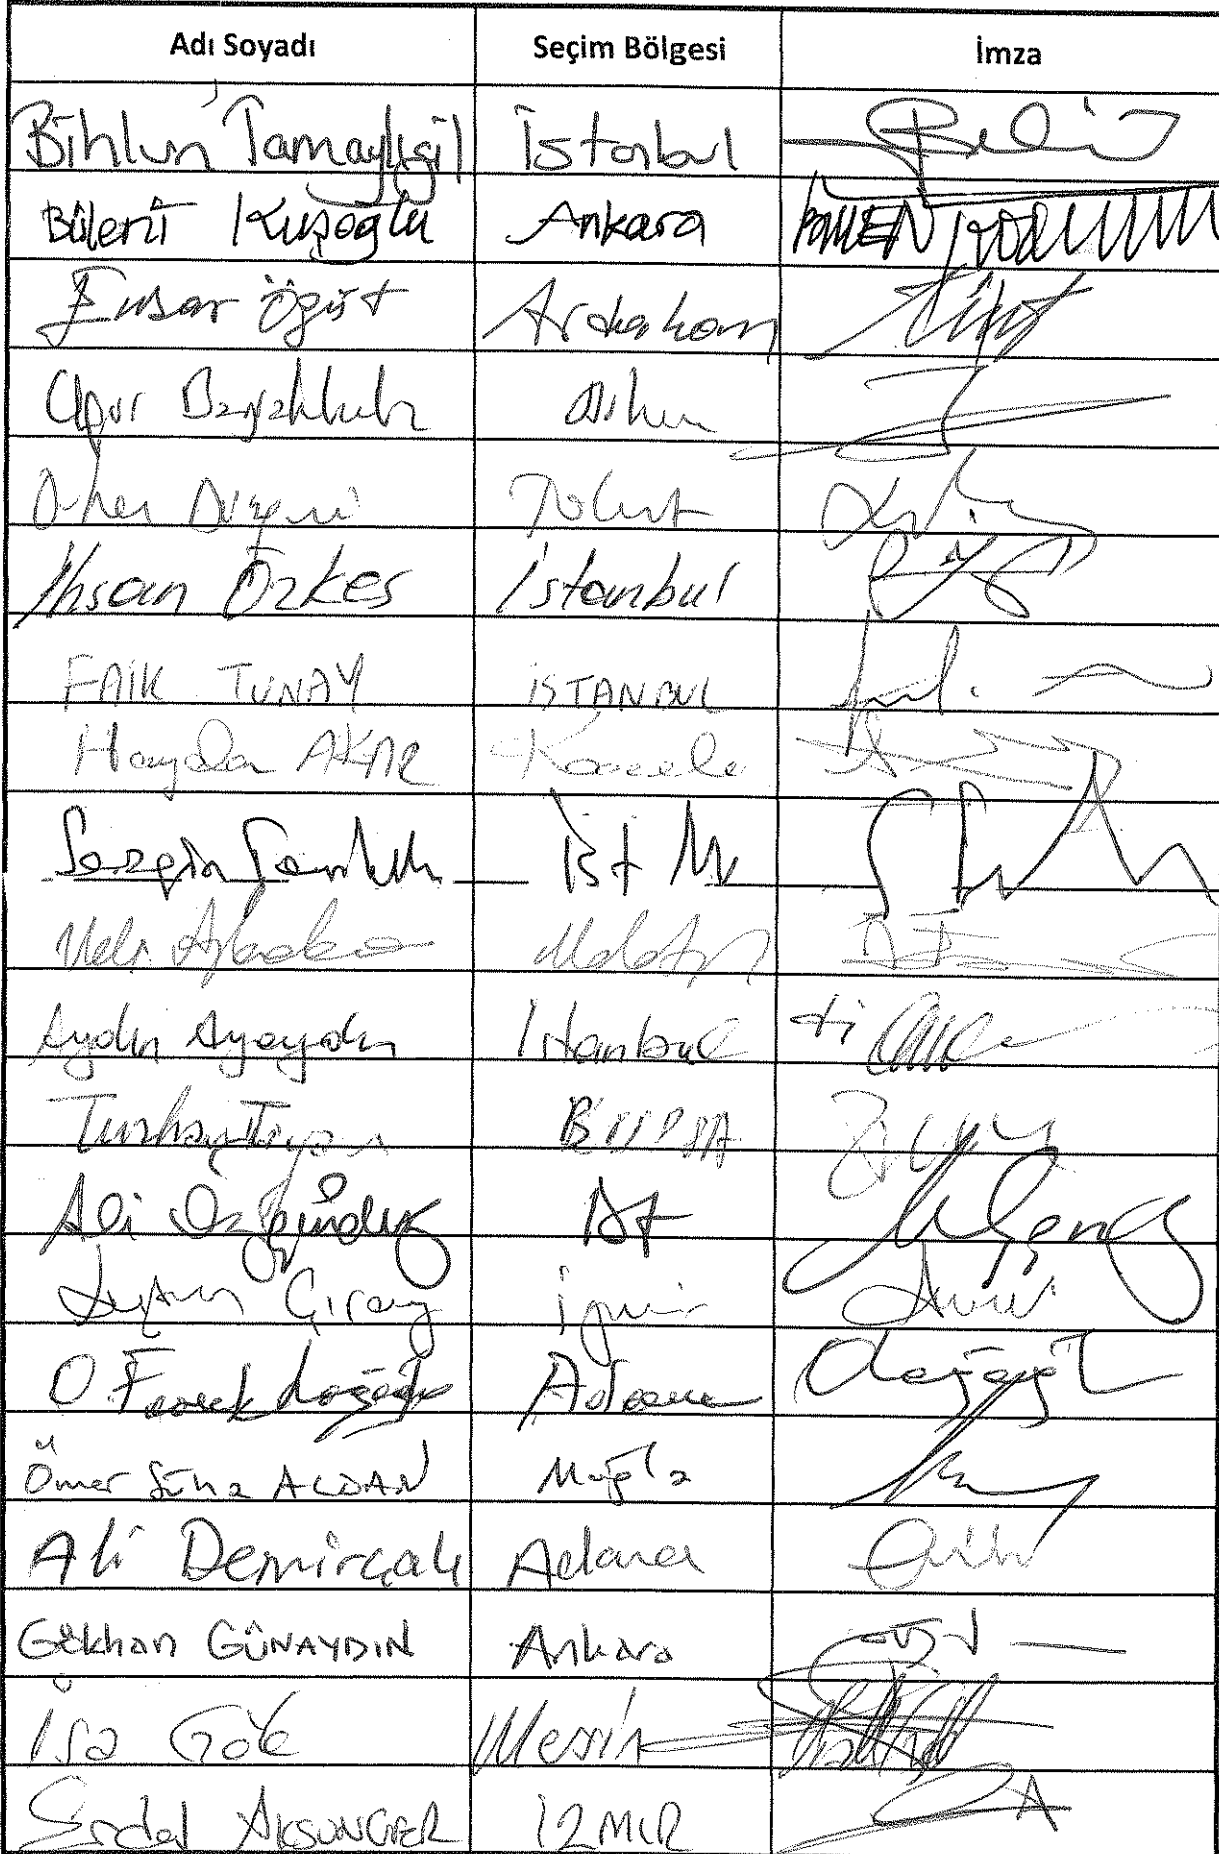 Adı Soyadı Seçim Bölgesi İmza
Bihlun Tamaylıgil İstanbul
Bülent Kuşoğlu Ankara
Ensar Öğüt Ardahan
Uğur Bayraktutan
Tokat
İhsan Özkes İstanbul
FAİK TUNAY İSTANBUL
Haydar AKAR Kocaeli
Sezgin Tanrıkulu İst
Veli Ağbaba Malatya
Aydın Ayaydın İstanbul
Turhan Tayan BURSA
Ali Özgündüz İst
Aytun Çıray İzmir
O Faruk Loğoğlu Adana
Ömer Süha ALDAN Muğla
Ali Demirçalı Adana
Gökhan GÜNAYDIN Ankara
İsa Gök Mersin
Erdal AKSÜNGER İZMİR